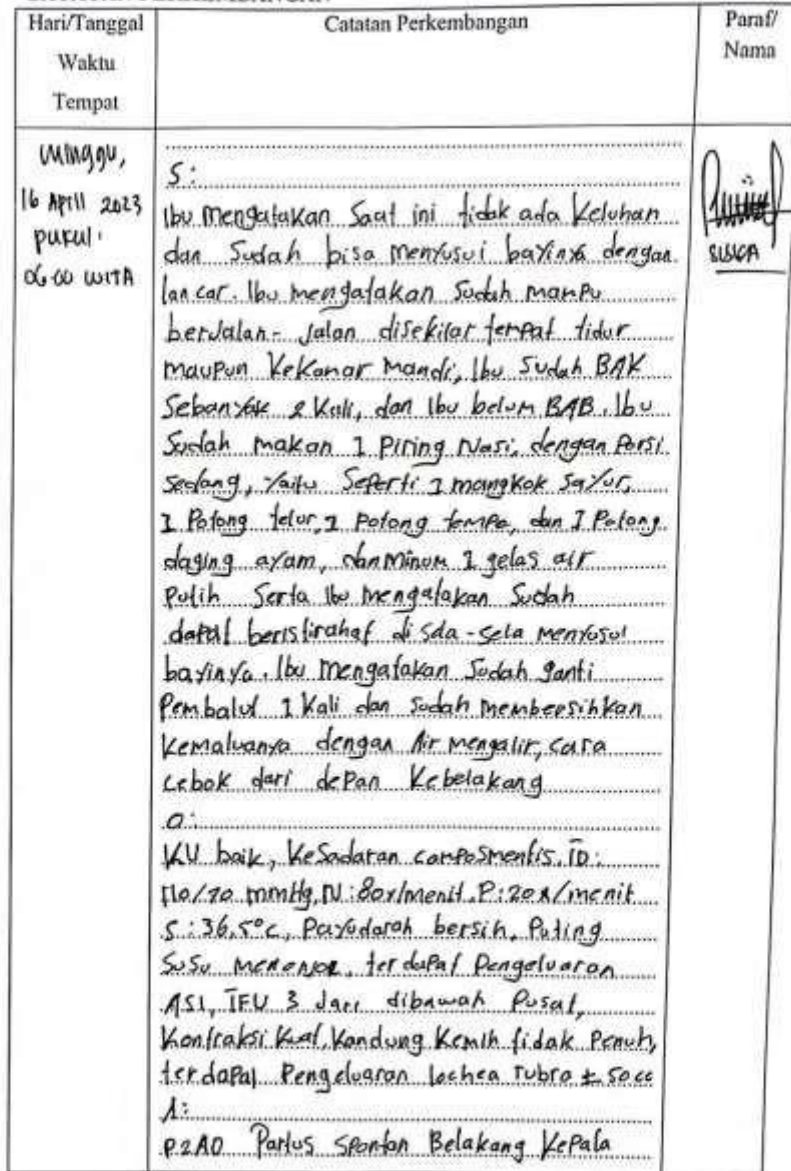 Hari/Tanggal
Waktu
Tempat
Catatan Perkembangan
Paraf/
Nama
Minggu,
16 April 2023
pukul:
06.00 WITA
S:
Ibu mengatakan Saat ini tidak ada keluhan
dan Sudah bisa menyusui bayinya dengan
lancar. Ibu mengatakan Sudah mampu
berjalan-jalan disekitar tempat tidur
maupun kekamar mandi, Ibu Sudah BAK
Sebanyak 2 Kali, dan Ibu belum BAB. Ibu
Sudah makan 1 Piring Nasi, dengan Porsi
Sedang, Yaitu Seperti 1 mangkok Sayur,
1 Potong telur, 1 potong tempe, dan 1 Potong
daging ayam, dan Minum 1 gelas air
putih Serta Ibu mengatakan Sudah
dapat beristirahat di Sela-Sela menyusui
bayinya. Ibu mengatakan Sudah ganti
Pembalut 1 Kali dan Sudah membersihkan
Kemaluanya dengan Air mengalir, cara
cebok dari dePan Kebelakang
O:
KU baik, KeSadaran composmentis, TD:
110/70 mmHg, N:80x/menit, P:20x/menit
S:36,5°C, Payudarah bersih, Puting
SuSu menonjol, terdapat Pengeluaran
ASI, TFU 3 Jari dibawah Pusat,
Kontraksi Kuat, Kandung Kemih tidak Penuh,
terdapat Pengeluaran lochea rubra ± 50 cc
A:
P2A0 Partus Spontan Belakang Kepala